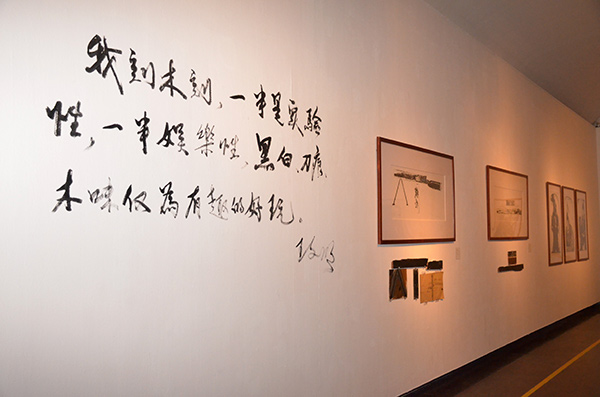 我刻木刻，一半是实驗
性，一半娛樂性，黑白、刀痕、
木味仅為有趣的好玩。